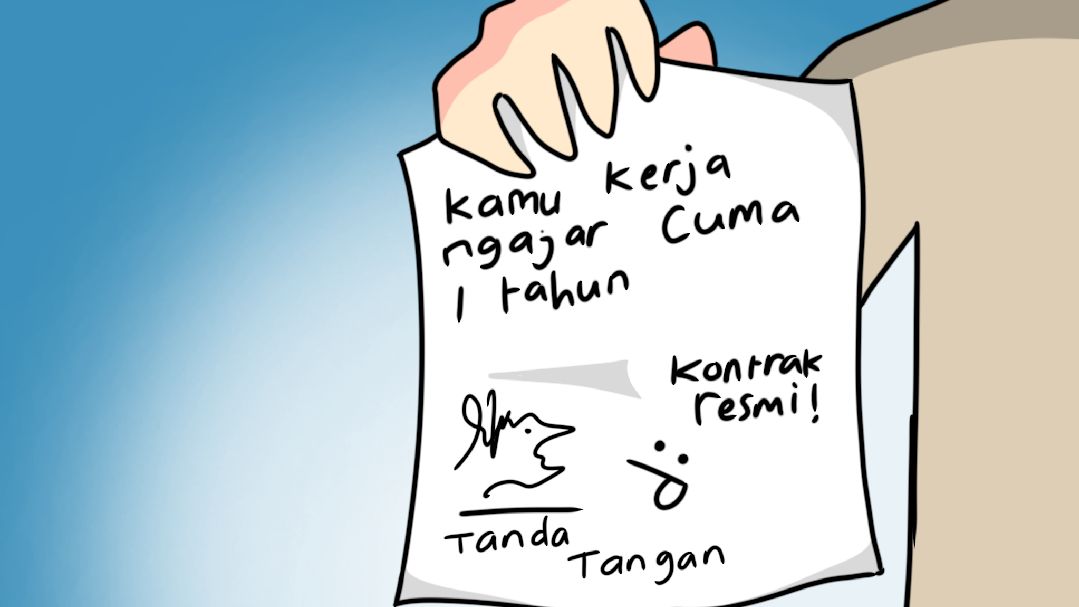 kamu kerja
ngajar cuma
1 tahun
kontrak
resmi!
Tanda
Tangan